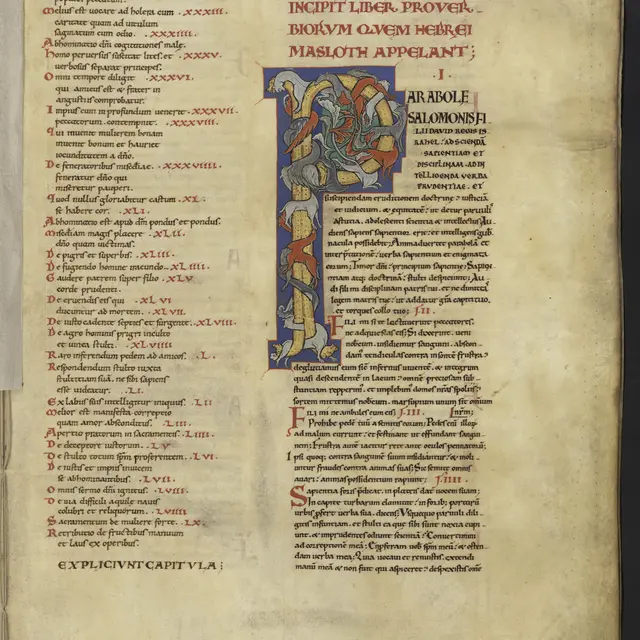 Melius est vocare ad holera cum . XXXIII.
caritate quam ad vitulum
saginatum cum odio . XXXIIII.
Abhominatio dñi cogitationes malę.
Homo perversus suscitat lites. et . XXXV.
verbosus separat principes.
Omni tempore diligit . XXXVI.
qui amicus est & frater in
angustiis comprobatur.
Impius cum in profundum venerit . XXXVII.
peccatorum contempnit . XXXVIII.
Qui invenit mulierem bonam
invenit bonum et hauriet
iocunditatem a dño.
De feneratoribus misediae . XXXVIIII.
feneratur dño qui
miseretur pauperi.
Quod nullus gloriabitur castum . XL.
se habere cor. . XLI.
Abhominatio est apud dñm pondus et pondus.
Misediam magis placere . XLII.
dño quam victimas.
De pigris et superbis . XLIII.
De fugiendo homine iracundo . XLIIII.
Gaudere patrem super filio . XLV
corde prudenti.
De eruendis eis qui . XLVI
ducuntur ad mortem . XLVII.
De iusto cadente septies et surgente . XLVIII.
De agro hominis pigri inculto
et vinea stulti . XLVIIII.
Raro inferendum pedem ad amicos . L.
Respondendum stulto iuxta
stultitiam suã. ne sibi sapiens
esse videatur . LI.
Ex labiis suis intelligitur iniquus. LII
Melior est manifesta correptio
quam amor absconditus . LIII.
Apertio pratorum in sacramentis. LIIII.
De deceptore iustorum . LV
De stulto totum spm proferentem . LVI.
De iustis et impiis invicem
se abhominantibus . LVII.
Omnis sermo dñi ignitus. LVIII.
De via difficili aquile navis
colubri et reliquorum. LVIIII
Sacramentum de muliere forte. LX.
Retributio de fructibus manuum
et laus ex operibus.
EXPLICIUNT CAPITULA;
INCIPIT LIBER PROVER
BIORVM QVEM HEBREI
MASLOTH APPELANT;
. I
PARABOLE
SALOMONIS FI
LII DAVID REGIS IS
RAHEL. AD SCIENDÃ
SAPIENTIAM ET
DISCIPLINAM. AD IN
TELLIGENDA VERBA
PRUDENTIAE. ET
suscipiendam eruditionem doctrine. iusticiã
et iudicium. & equitatẽ. ut detur parvulis
astutia. adolescenti scientia & intellectus. Au
diens sapiens sapientior erit. & intelligens gub
nacula possidebit; Animadvertet parabolã et
interp̃tationẽ. verba sapientum et enigmata
eorum; Timor dñi. principium sapientie; Sapien
tiam atq; doctrinã. stulti despiciunt; Au
di fili mi disciplinam patris tui. et ne dimittas
legem matris tue. ut addatur gra capiti tuo.
et torques collo tuo; . II.
Fili mi si te lactaverint peccatores.
ne adquiescas eis; Si dixerint. veni
nobiscum. insidiemur sanguini. abscon
dam tendiculas contra insontẽ frustra.
deglutiamus eum sic infernus viventẽ. & integrum
quasi descendentẽ in lacum. omnẽ preciosam sub
stantiam repperim. et implebim domos nr̃as spoliis.
sortem mitte nobiscum. marsupium unum sit omnium
Fili mi ne ambules cum eis . III. nrm;
Prohibe pedẽ tuũ a semitis eorum; Pedes eni illoꝝ
ad malum currunt. et festinant ut effundant sangui
nem; Frustra autẽ iacitur rete ante oculos pennatorũ;
Ipsi quoq; contra sanguinẽ suum insidiantur. & moli
untur fraudes contra animas suas; Sic semite omnis
avari. animas possidentium rapiunt; . IIII.
Sapientia foris p̃dicat. in plateis dat vocem suam;
In capite turbarum clamitat. in foribz portarũ
urbis p̃fert verba sua. dicens; Usquequo parvuli dili
gitis infantiam. et stulti ea que sibi sunt noxia cupi
unt. & imprudentes odiunt scientiã. Convertimini
ad correptionẽ meã; En p̃feram vob spm meũ. & osten
dam verba mea; Quia vocavi et renuistis. extendi
manũ meã & non fuit qui aspiceret. despexistis omẽ